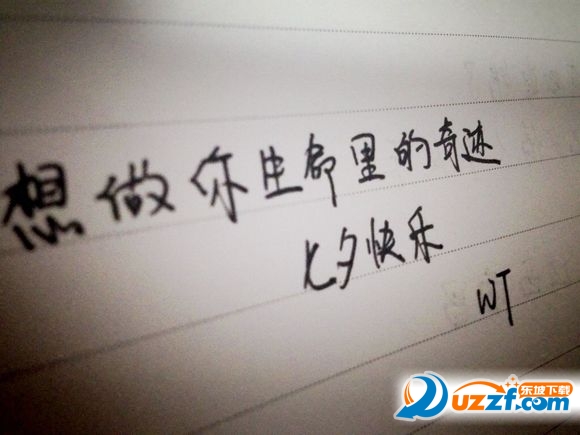 想做你生命里的奇迹
七夕快乐
WT
东坡下载
uzzf.com